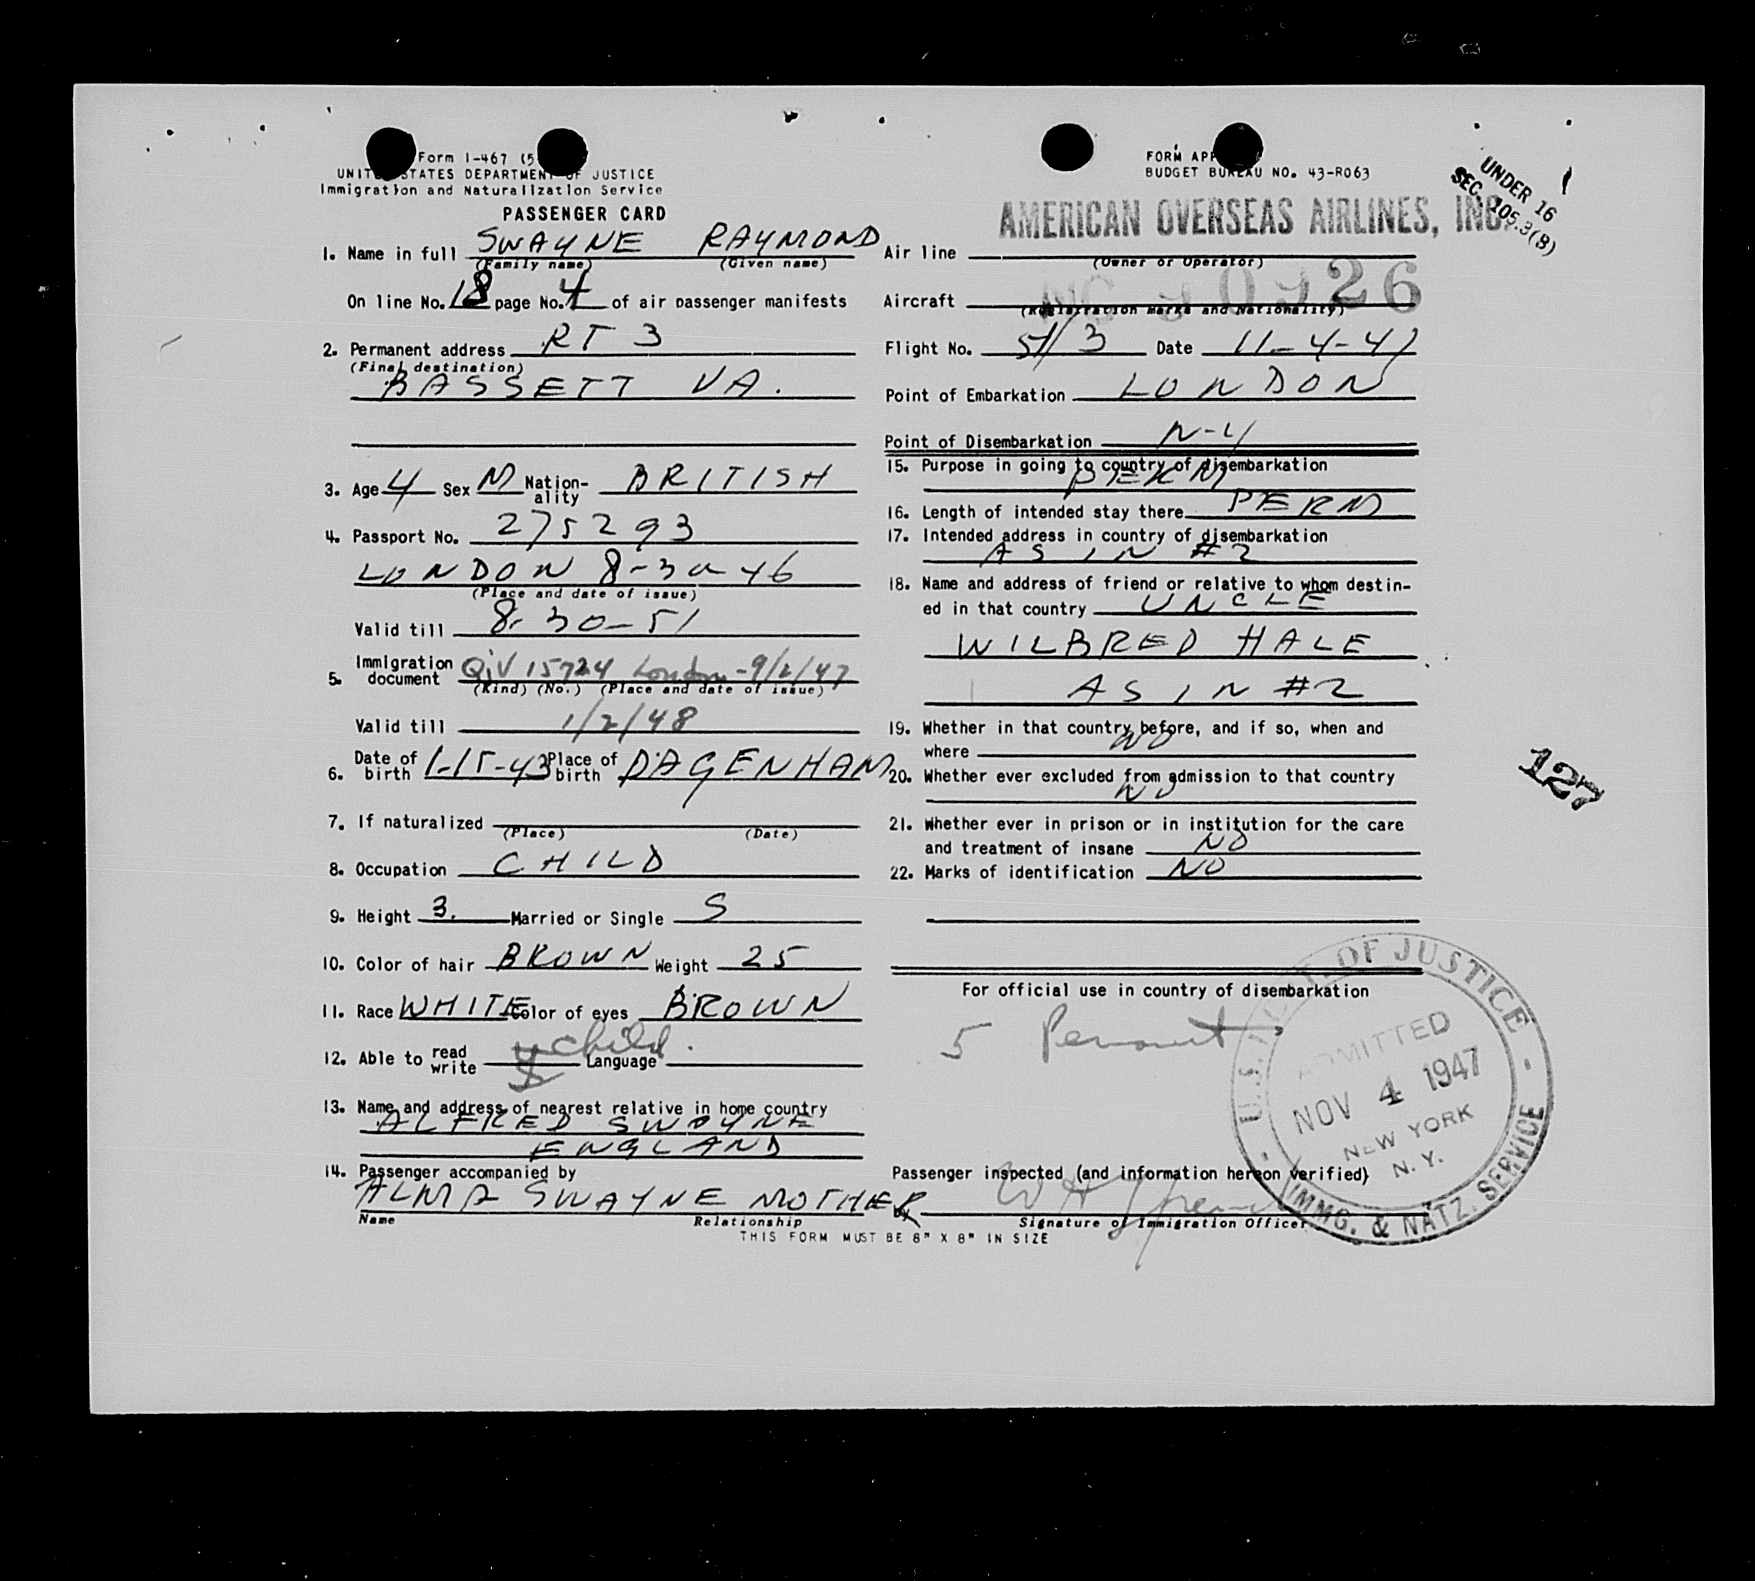 Form I-467 (5
UNITED STATES DEPARTMENT OF JUSTICE
Immigration and Naturalization Service
PASSENGER CARD
1. Name in full SWAYNE RAYMOND
(Family name) (Given name)
On line No. 18 page No. 4 of air passenger manifests
2. Permanent address RT 3
(Final destination)
BASSETT VA.
3. Age 4 Sex M Nation-ality BRITISH
4. Passport No. 275293
LONDON 8-30-46
(Place and date of issue)
Valid till 8-30-51
5. Immigration document QIV 15724 London-9/2/47
(Kind) (No.) (Place and date of issue)
Valid till 1/2/48
6. Date of birth 1-15-43 Place of birth DAGENHAM
7. If naturalized
(Place) (Date)
8. Occupation CHILD
9. Height 3. Married or Single S
10. Color of hair BROWN Weight 25
11. Race WHITE Color of eyes BROWN
12. Able to read write child. Language
13. Name and address of nearest relative in home country
ALFRED SWAYNE
ENGLAND
14. Passenger accompanied by
ALMA SWAYNE MOTHER
Name Relationship
THIS FORM MUST BE 8" X 8" IN SIZE
FORM APP
BUDGET BUREAU NO. 43-R063
UNDER 16
SEC. 105.3(B)
AMERICAN OVERSEAS AIRLINES, INC.
Air line
(Owner or Operator)
Aircraft NC 90926
(Registration marks and Nationality)
Flight No. 51/3 Date 11-4-47
Point of Embarkation LONDON
Point of Disembarkation N-Y
15. Purpose in going to country of disembarkation
PERM
16. Length of intended stay there PERM
17. Intended address in country of disembarkation
AS IN #2
18. Name and address of friend or relative to whom destin-
ed in that country UNCLE
WILBRED HALE
AS IN #2
19. Whether in that country before, and if so, when and
where NO
20. Whether ever excluded from admission to that country
NO
21. Whether ever in prison or in institution for the care
and treatment of insane NO
22. Marks of identification NO
127
For official use in country of disembarkation
5
U.S. DEPT. OF JUSTICE
ADMITTED
NOV 4 1947
NEW YORK
N.Y.
IMMG. & NATZ. SERVICE
Passenger inspected (and information hereon verified)
by
Signature of Immigration Officer